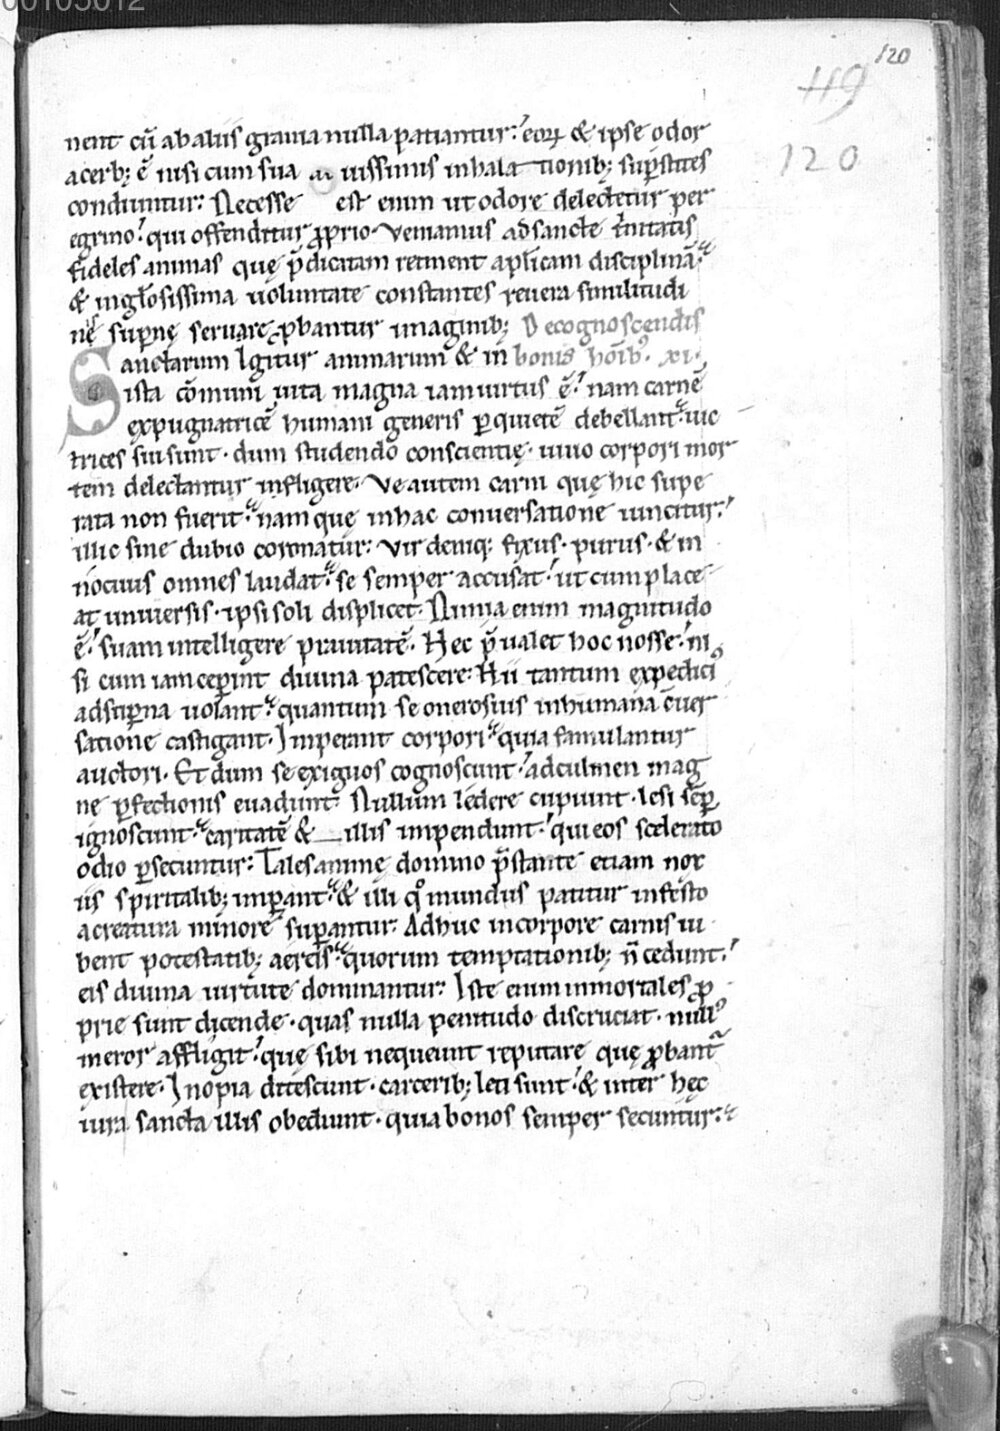 00105012
120
119
120
nent cū ab aliis grauia nulla patiantur: eoꝝ & ipse odor
acerb; ē nisi cum sua uissimus inhala tionib; suꝑstites
condiuntur: Necesse est enim ut odore delectetur per
egrino: qui offenditur ꝓprio. Veniamus ad sancte t̄nitatis
fideles animas quę p̄dicatam retinent apl̄icam disciplinā:
& inglōsissima uoluntate constantes reuera similitudi
nęs suꝑnę seruare ꝓbantur imaginib; De cognoscendis
Sanctarum Igitur animarum & in bonis hōīb;. XI.
ista cōmuni uita magna iam uirtus ē: nam carnē
expugnatricē humani generis ꝑ quietē debellant: uic
trices sui sunt. dum studendo conscientię. uiuo corpori mor
tem delectantur infligere. Ve autem carni quę hic supe
rata non fuerit: nam quę in hac conuersatione uincitur:
illic sine dubio coronatur: Vir deniq: fixus. purus. & in
nocuus omnes laudat: se semper accusat: ut cum place
at uniuersis. ipsi soli displicet. Nimia enim magnitudo
ē: suam intelligere prauitatē. Hec p̄ualet hoc nosse: ni
si cum iam ceꝑint diuina patescere: Hii tantum expediciꝰ
ad suꝑna uolant: quantum se onerosius inhumana c̄uer
satione castigant. Imperant corpori: quia famulantur
auctori. Et dum se exiguos cognoscunt: ad culmen mag
nę ꝑfectionis euadunt: Nullum lędere cupiunt. lesi sēꝑ
ignoscunt: caritatē & illis impendunt: qui eos scelerato
odio ꝑsecuntur: Tales animę domino p̄stante etiam nox
iis spiritalib; imꝑant: & illi qͦs mundus patitur infesto
a creatura minore suꝑantur: Adhuc in corpore carnis iu
bent potestatib; aereis: quorum temptationib; n̄ cedunt:
eis diuina uirtute dominantur: Iste enim inmortales ꝓ
prie sunt dicende. quas nulla penitudo discruciat. nullꝰ
meror affligit: quę sibi nequeunt reputare quę ꝓbantͬ
existere. Inopia ditescunt. carcerib; leti sunt: & inter hęc
iura sancta illis obediunt. quia bonos semper secuntur: